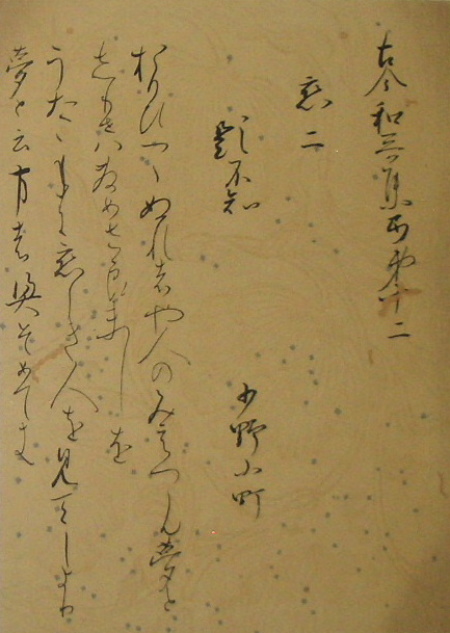 古今和哥集巻第十二
恋二
題不知
小野小町
おもひつゝぬれはや人のみえつらん夢と
しりせはさめさらましを
うたゝねに恋しき人を見てしより
夢と云物は憑そめてき